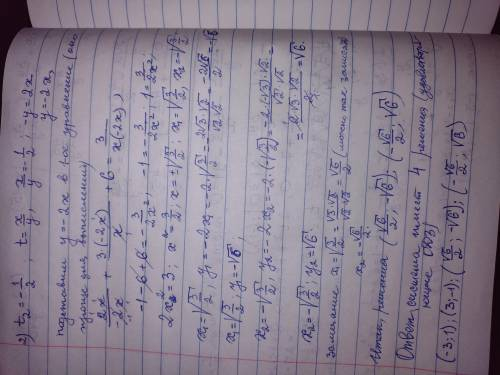 2) t₂ = -1/2 ; t = x/y ; x/y = -1/2 ; -y = 2x
y = -2x,
подставим y = -2x в 1-ое уравнение (оно
проще для вычисления)
2x/-2x + 3·(-2x)/x + 6 = 3/x(-2x) ;
-1 - 6 + 6 = -3/2x² ; -1 = -3/2x² ; 1 = 3/2x² ;
2x² = 3; x² = 3/2; x = ±√3/2; x₁ = √3/2; x₂ = -√3/2
x₁ = √3/2; y₁ = -2x₁ = -2·√3/2 = -2√3·√2/√2·√2 = -2√6/2 = -√6
x₁ = √3/2; y₁ = -√6;
x₂ = -√3/2; y₂ = -2x₂ = -2·(-√3/2) = -2·(-√3)·√2/√2·√2 =
= 2·√3·√2/2 = √6.
x₂ = -√3/2; y₂ = √6.
замечание x₁ = √3/2 = √3·√2/√2·√2 = √6/2 (можно так записать
x₂ = -√6/2.
Итак, решения (√6/2; -√6); (-√6/2; √6)
Ответ: система имеет 4 решения (удовлетвор.
ющие ОДЗ)
(-3;1); (3;-1); (√6/2; -√6); (-√6/2; √6)